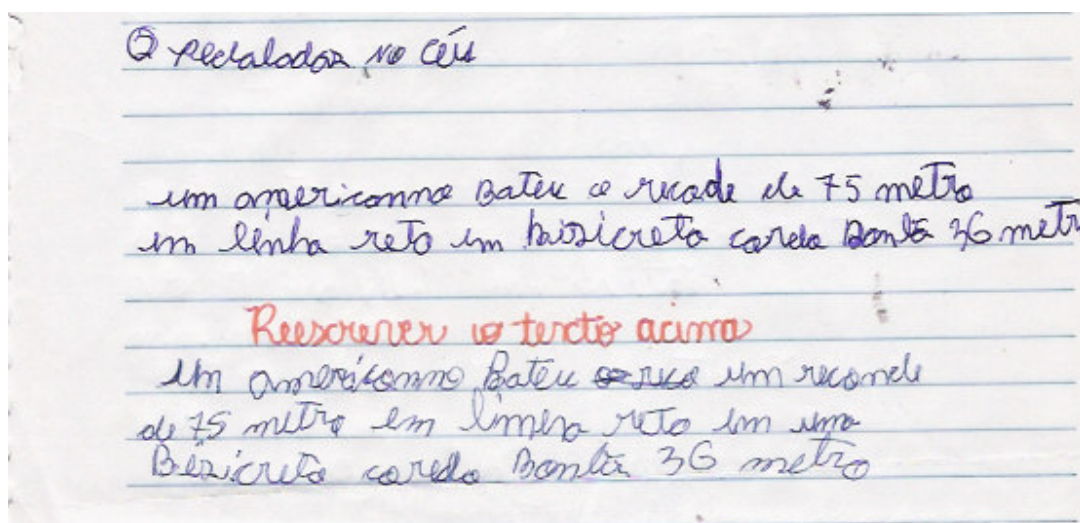 O pedalador no céu
um americanno Bateu o recode de 75 metro
em linha reto em bisicreta corda Bonba 36 metr
Reescrever o texto acima
Um americanno Bateu um reconde
de 75 metro em linha reto em uma
Bisicreta corda Bonba 36 metro